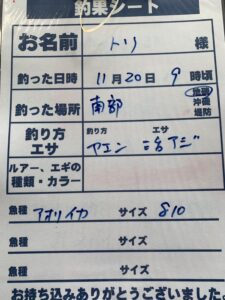 釣果シート
お名前 トリ 様
釣った日時 11月20日 9時頃
釣った場所 南部 地磯 沖磯 堤防
釣り方 エサ 釣り方 ヤエン エサ 活アジ
ルアー、エギの種類・カラー
魚種 アオリイカ サイズ 810
魚種 サイズ
魚種 サイズ
お持ち込みありがとうございました。